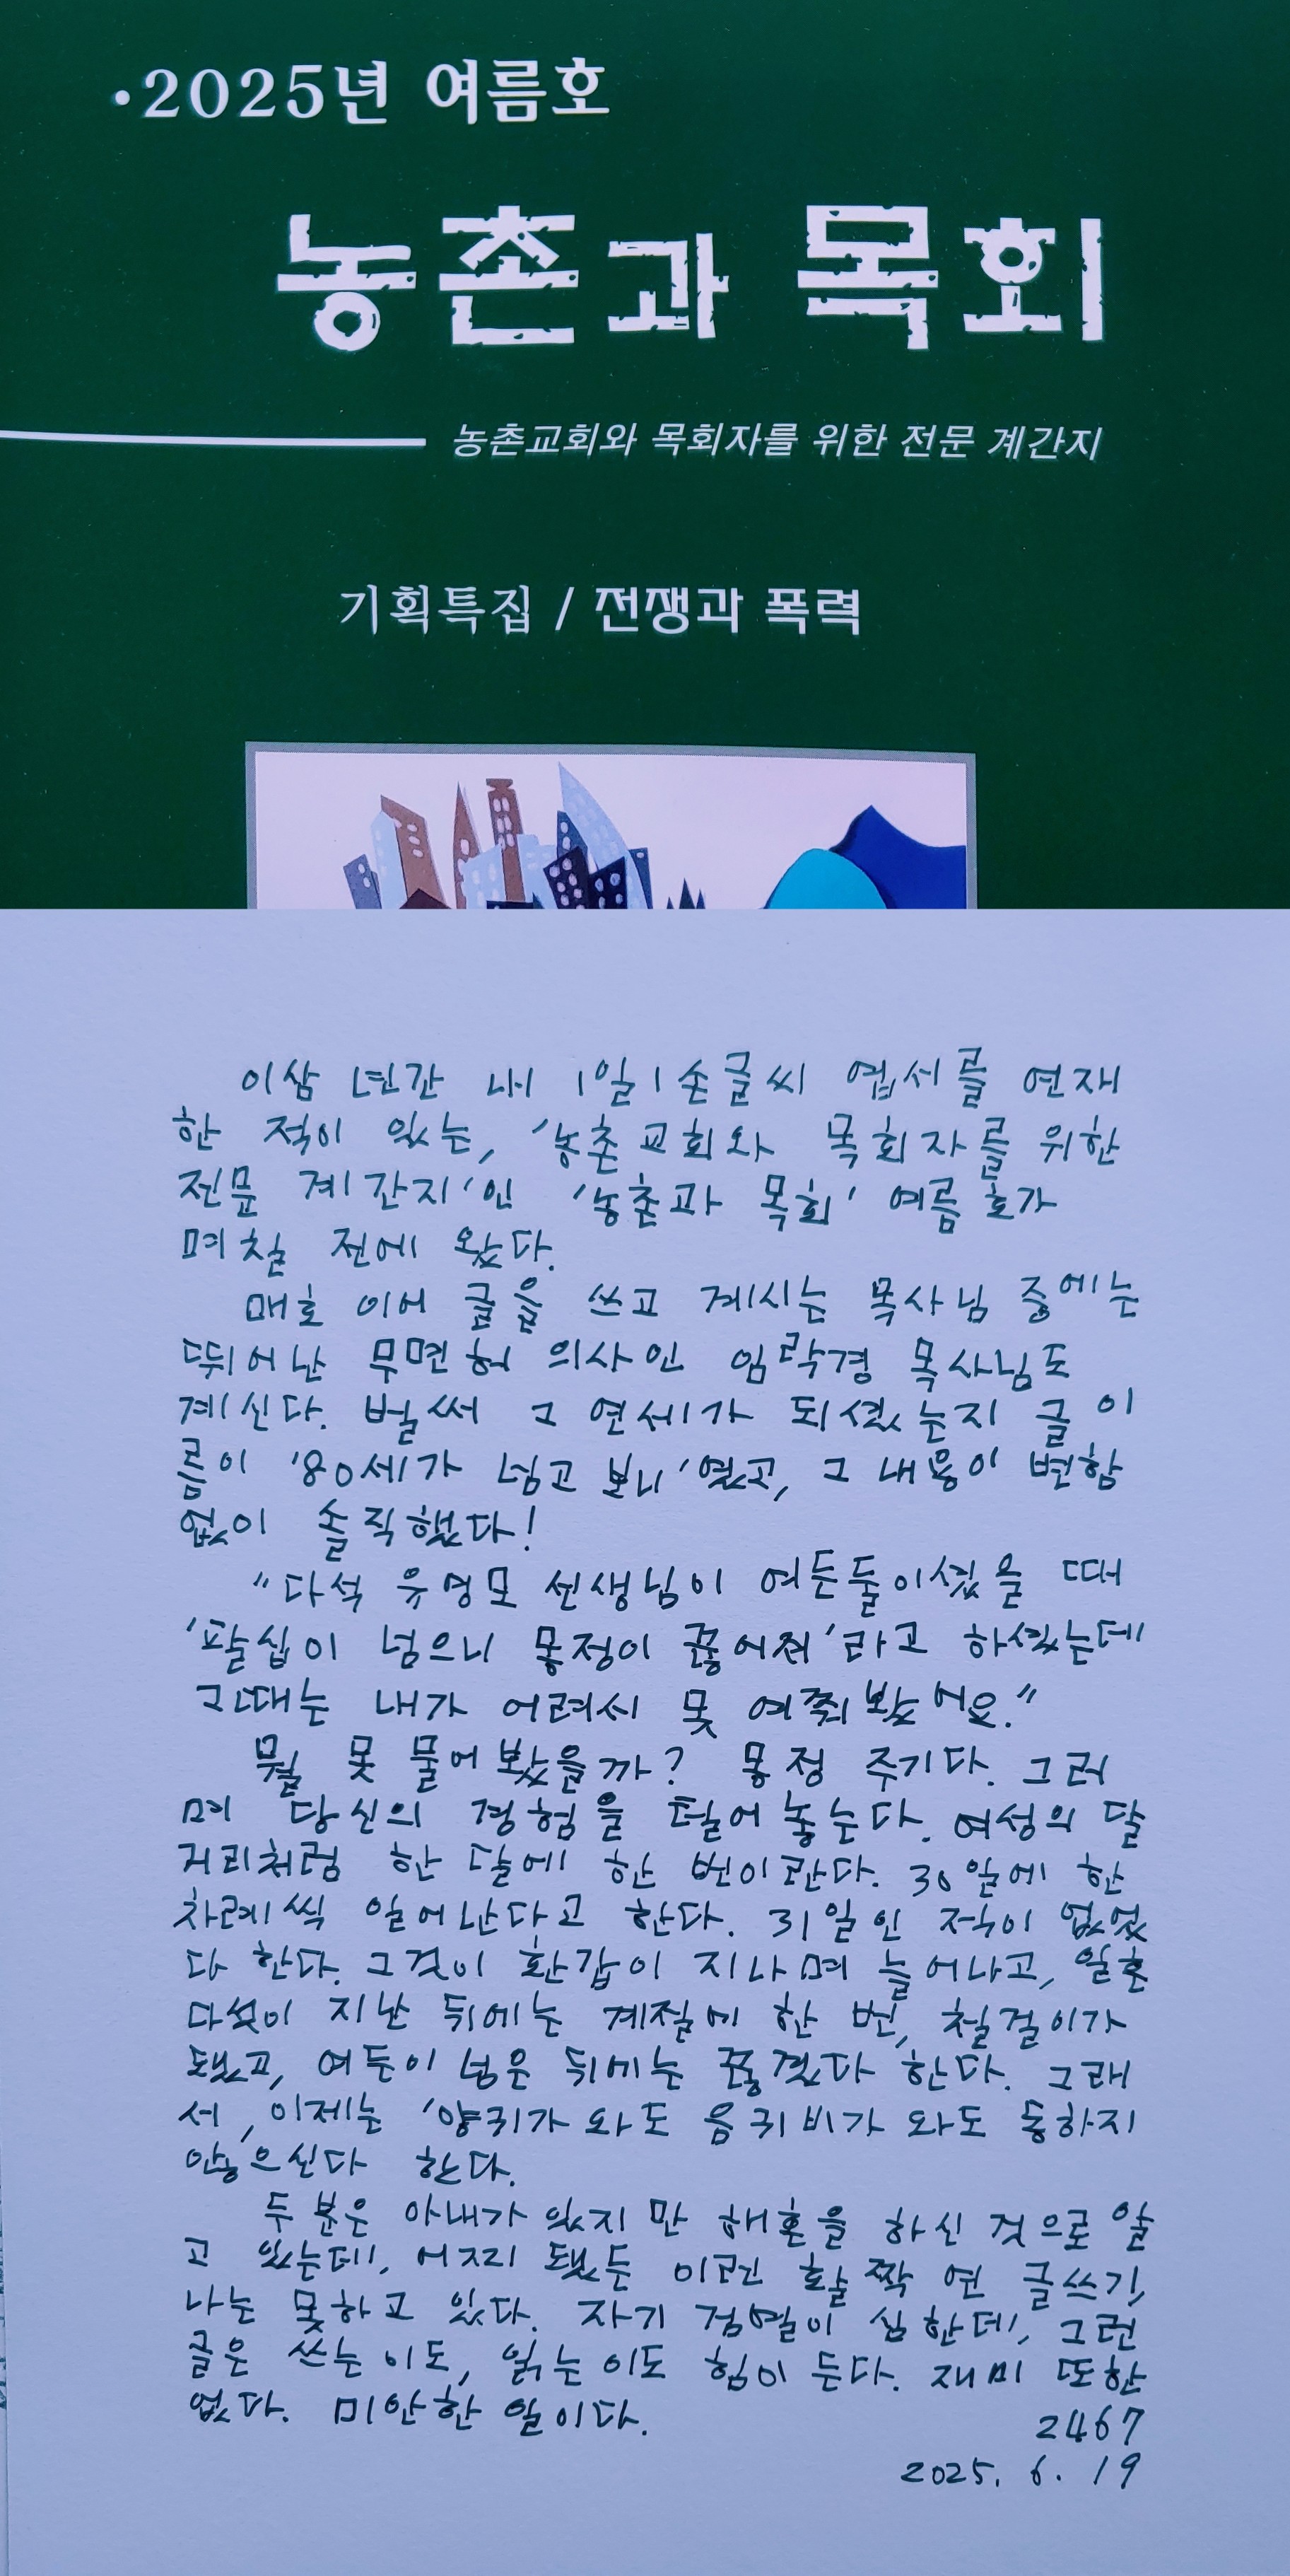 ·2025년 여름호
농촌과 목회
농촌교회와 목회자를 위한 전문 계간지
기획특집 / 전쟁과 폭력
이삼 년간 내 1일1손글씨 엽서를 연재
한 적이 있는, '농촌교회와 목회자를 위한
전문 계간지'인 '농촌과 목회' 여름호가
며칠 전에 왔다.
매호 이어 글을 쓰고 계시는 목사님 중에는
뛰어난 무면허 의사인 임락경 목사님도
계신다. 벌써 그 연세가 되셨는지 글 이
름이 '80세가 넘고 보니'였고, 그 내용이 변함
없이 솔직했다!
"다석 유영모 선생님이 여든둘이셨을 때
'팔십이 넘으니 몽정이 끊어져'라고 하셨는데
그때는 내가 어려서 못 여쭤봤어요."
뭘 못 물어봤을까? 몽정 주기다. 그러
며 당신의 경험을 털어놓는다. 여성의 달
거리처럼 한 달에 한 번이란다. 30일에 한
차례씩 일어난다고 한다. 31일인 적이 없었
다 한다. 그것이 환갑이 지나며 늘어나고, 일흔
다섯이 지난 뒤에는 계절에 한 번, 철걸이가
됐고, 여든이 넘은 뒤에는 끊겼다 한다. 그래
서, 이제는 '양귀가 와도 음귀비가 와도 동하지
않으신다 한다.
두 분은 아내가 있지만 해혼을 하신 것으로 알
고 있는데, 어찌 됐든 이런 활짝 연 글쓰기,
나는 못하고 있다. 자기 검열이 심한데, 그런
글은 쓰는 이도, 읽는 이도 힘이 든다. 재미 또한
없다. 미안한 일이다.
2467
2025. 6. 19